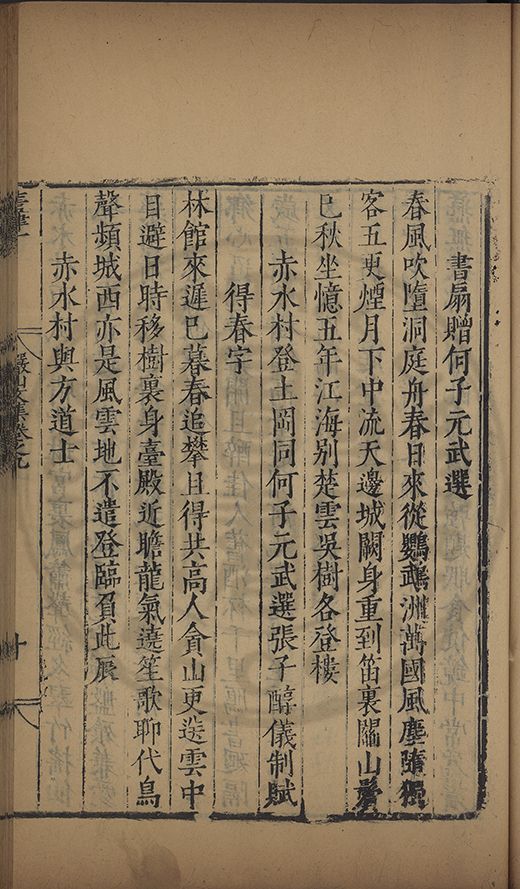 書扇贈何子元武選
春風吹墮洞庭舟春日來從鸚鵡洲萬國風塵隨獨
客五更煙月下中流天邊城闕身重到笛裏關山鬢
巳秋坐憶五年江海别楚雲吳樹各登樓
赤水村登土岡同何子元武選張子醇儀制賦
得春字
林館來遲巳暮春追攀且得共高人貪山更送雲中
目避日時移樹裏身臺殿近瞻龍氣遶笙歌聊代鳥
聲頻城西亦是風雲地不遣登臨負此辰
赤水村與方道士
十